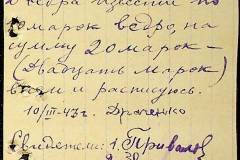 2 ведра извести по
10 марок ведро, на
сумму 20 марок -
(Двадцать марок)
взял и расписуюсь.
10/III-43г. Драченко
Свидетели: 1. Привалов
2.